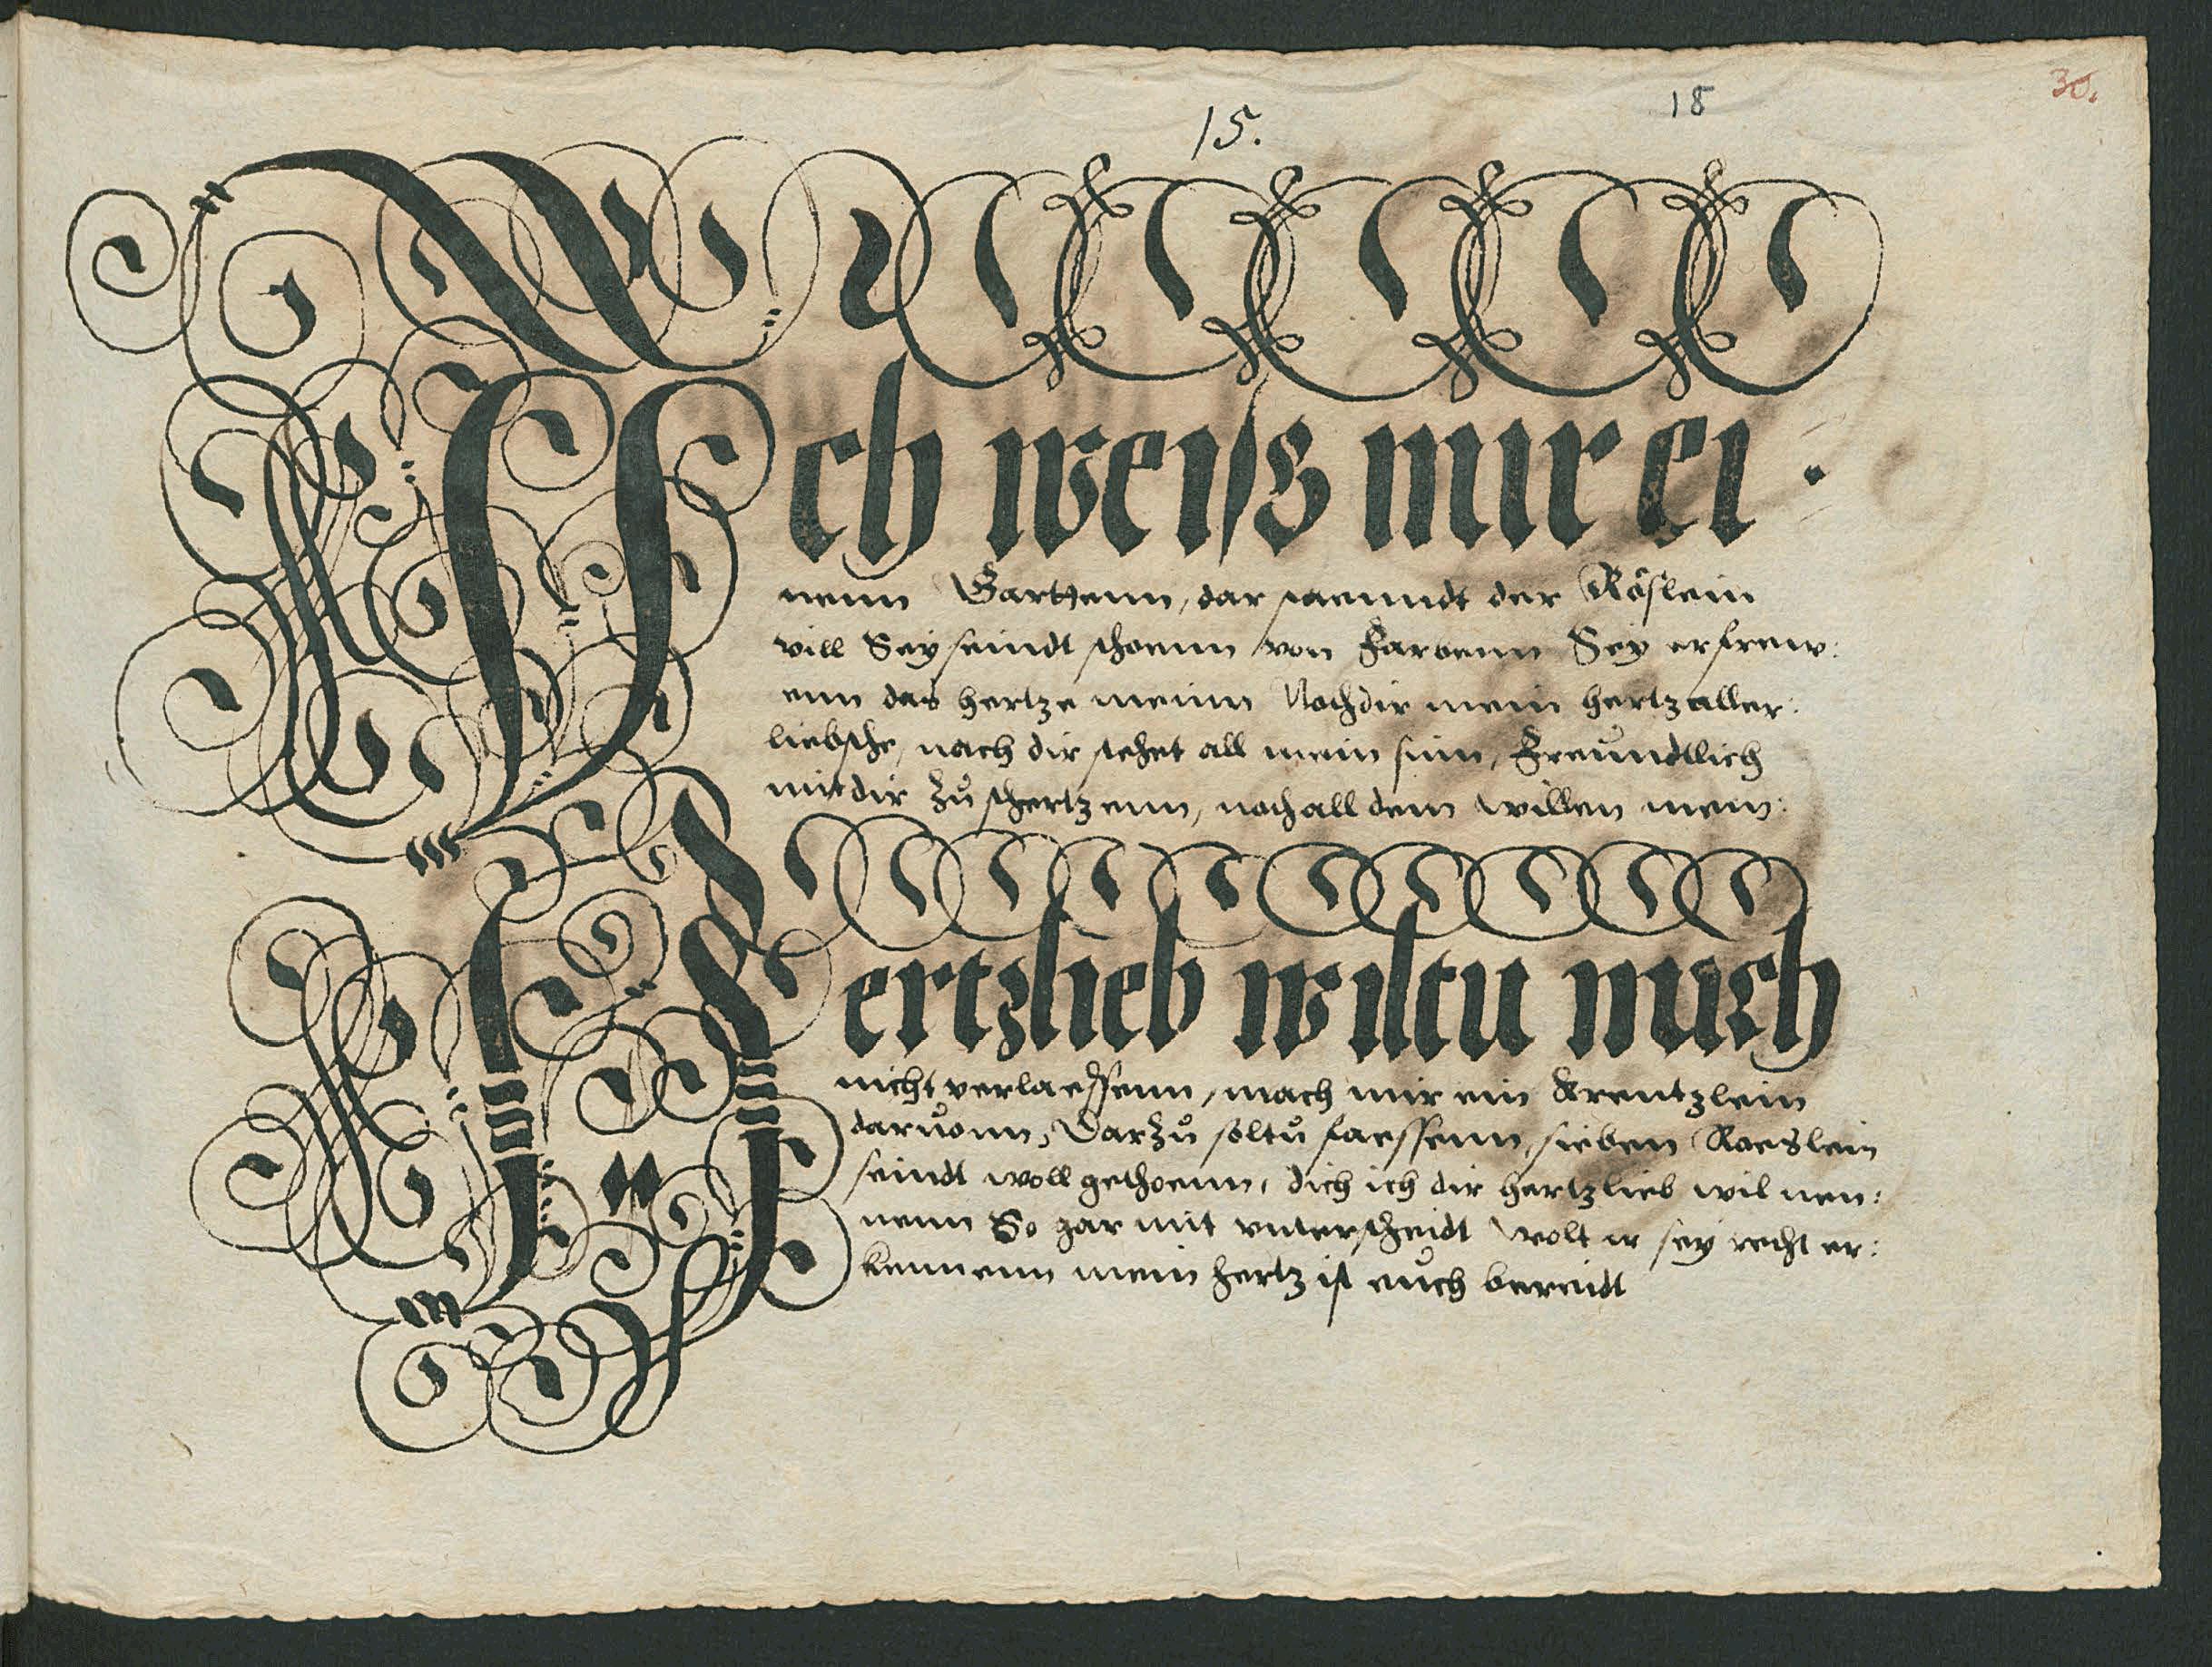 15.
18
30.
Ich weiß mir ei
nenn Garttenn, dar staenndt der Rößlein
vill Sey seindt schoenn von Farbenn Sey erfrew:
enn das hertze meinn Nach dir mein hertz aller:
liebsthe, nach dir stehet all mein sinn, Freündtlich
mit dir zů schertzenn, nach all dem willen mein:
Hertzlieb wiltu mich
nicht verlaessenn, mach mir ein Krentzlein
daruonn, Darzů soltů faessenn, sieben Roeslein
seindt woll gethoenn, dich ich dir hertzlieb wil nen:
nenn So gar mit vnterscheidt wolt ir sey recht er:
kennenn mein hertz ist eůch bereidt